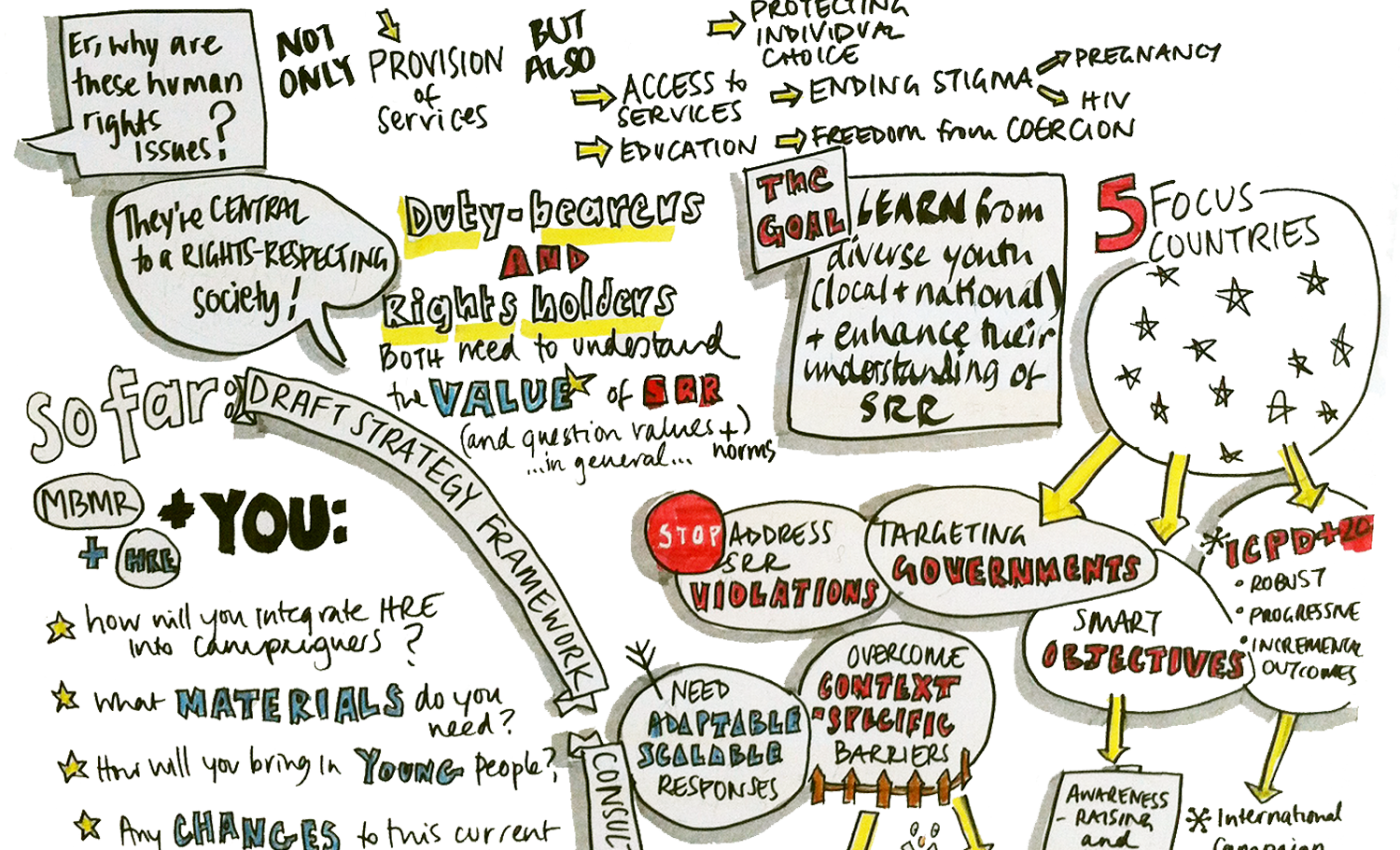 Er, why are
these human
rights
issues?
NOT
ONLY
PROVISION
of
services
BUT
ALSO
ACCESS to
SERVICES
EDUCATION
PROTECTING
INDIVIDUAL
CHOICE
ENDING STIGMA
PREGNANCY
HIV
FREEDOM from COERCION
They're CENTRAL
to a RIGHTS-RESPECTING
society!
Duty-bearers
AND
Rights holders
BOTH need to understand
the VALUE of SRR
(and question values +)
norms
...in general...
THE
GOAL
LEARN from
diverse youth
(local + national)
+ enhance their
understanding of
SRR
5 FOCUS
COUNTRIES
So far:
DRAFT STRATEGY FRAMEWORK
MBMR
+ HRE
+ YOU:
how will you integrate HRE
into campaigners?
What MATERIALS do you
need?
How will you bring in YOUNG people?
Any CHANGES to this current
CONSULT
STOP
ADDRESS
SRR
VIOLATIONS
TARGETING
GOVERNMENTS
SMART
OBJECTIVES
*ICPD+20
• ROBUST
• PROGRESSIVE
• INCREMENTAL
OUTCOMES
NEED
ADAPTABLE
SCALABLE
RESPONSES
OVERCOME
CONTEXT
-SPECIFIC
BARRIERS
AWARENESS
- RAISING
and
* International
Campaign